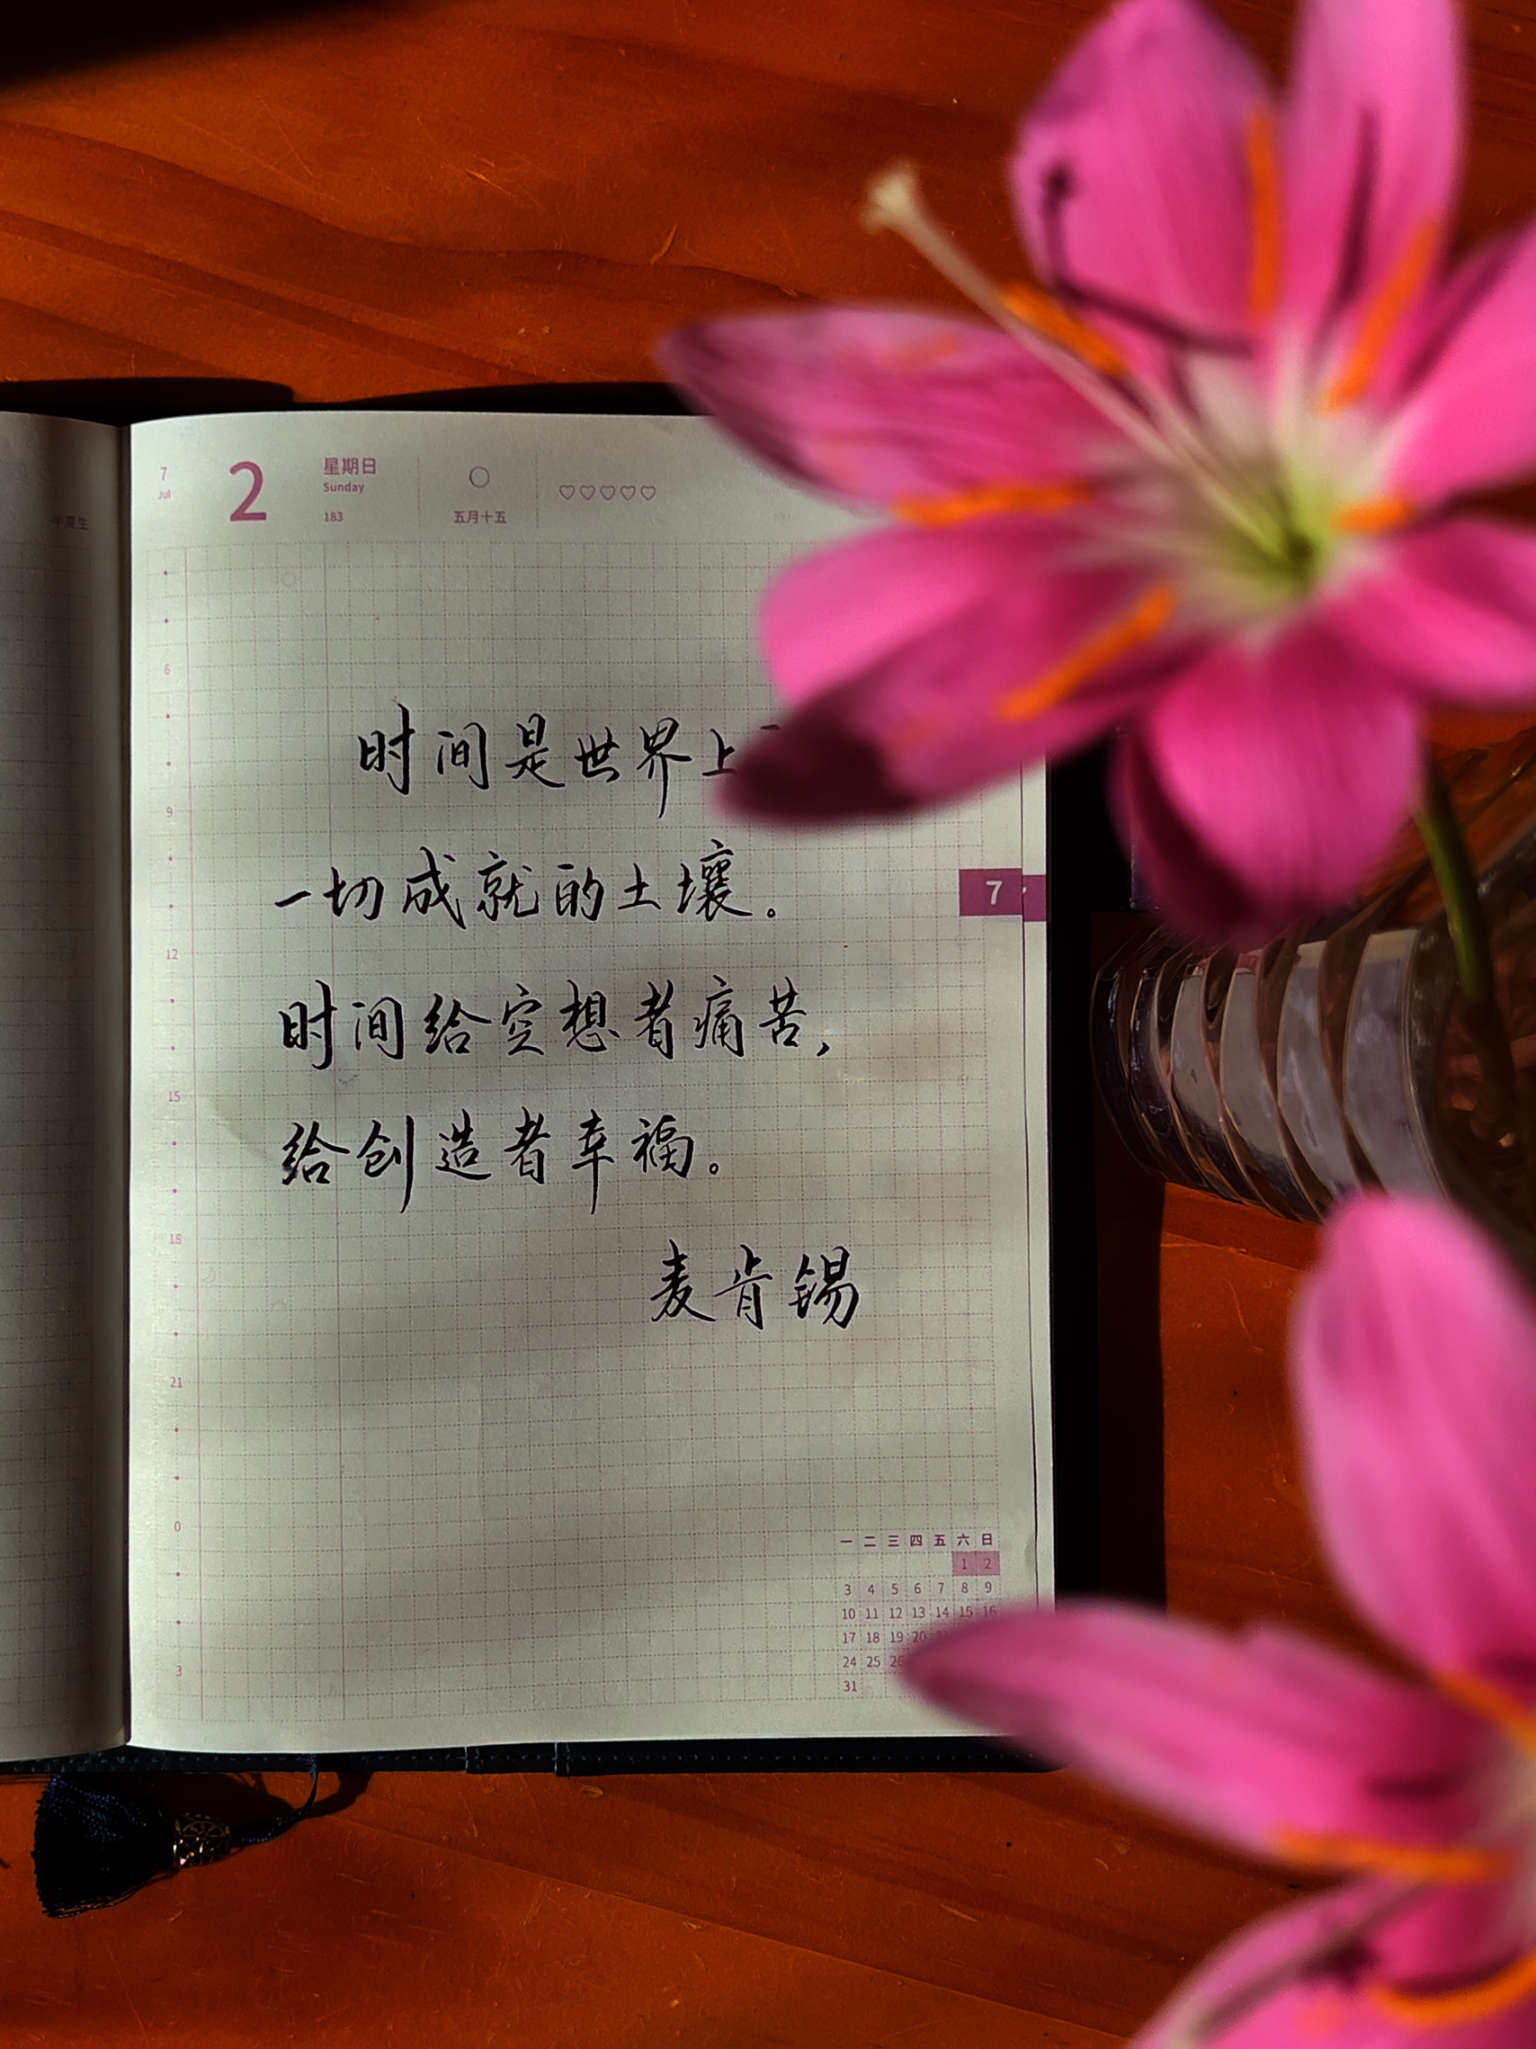 7
Jul
2
星期日
Sunday
183
五月十五
6
时间是世界上
9
一切成就的土壤。
7
12
时间给空想者痛苦，
15
给创造者幸福。
18
麦肯锡
21
0
一 二 三 四 五 六 日
1 2
3 4 5 6 7 8 9
10 11 12 13 14 15 16
17 18 19 20
24 25
31
3